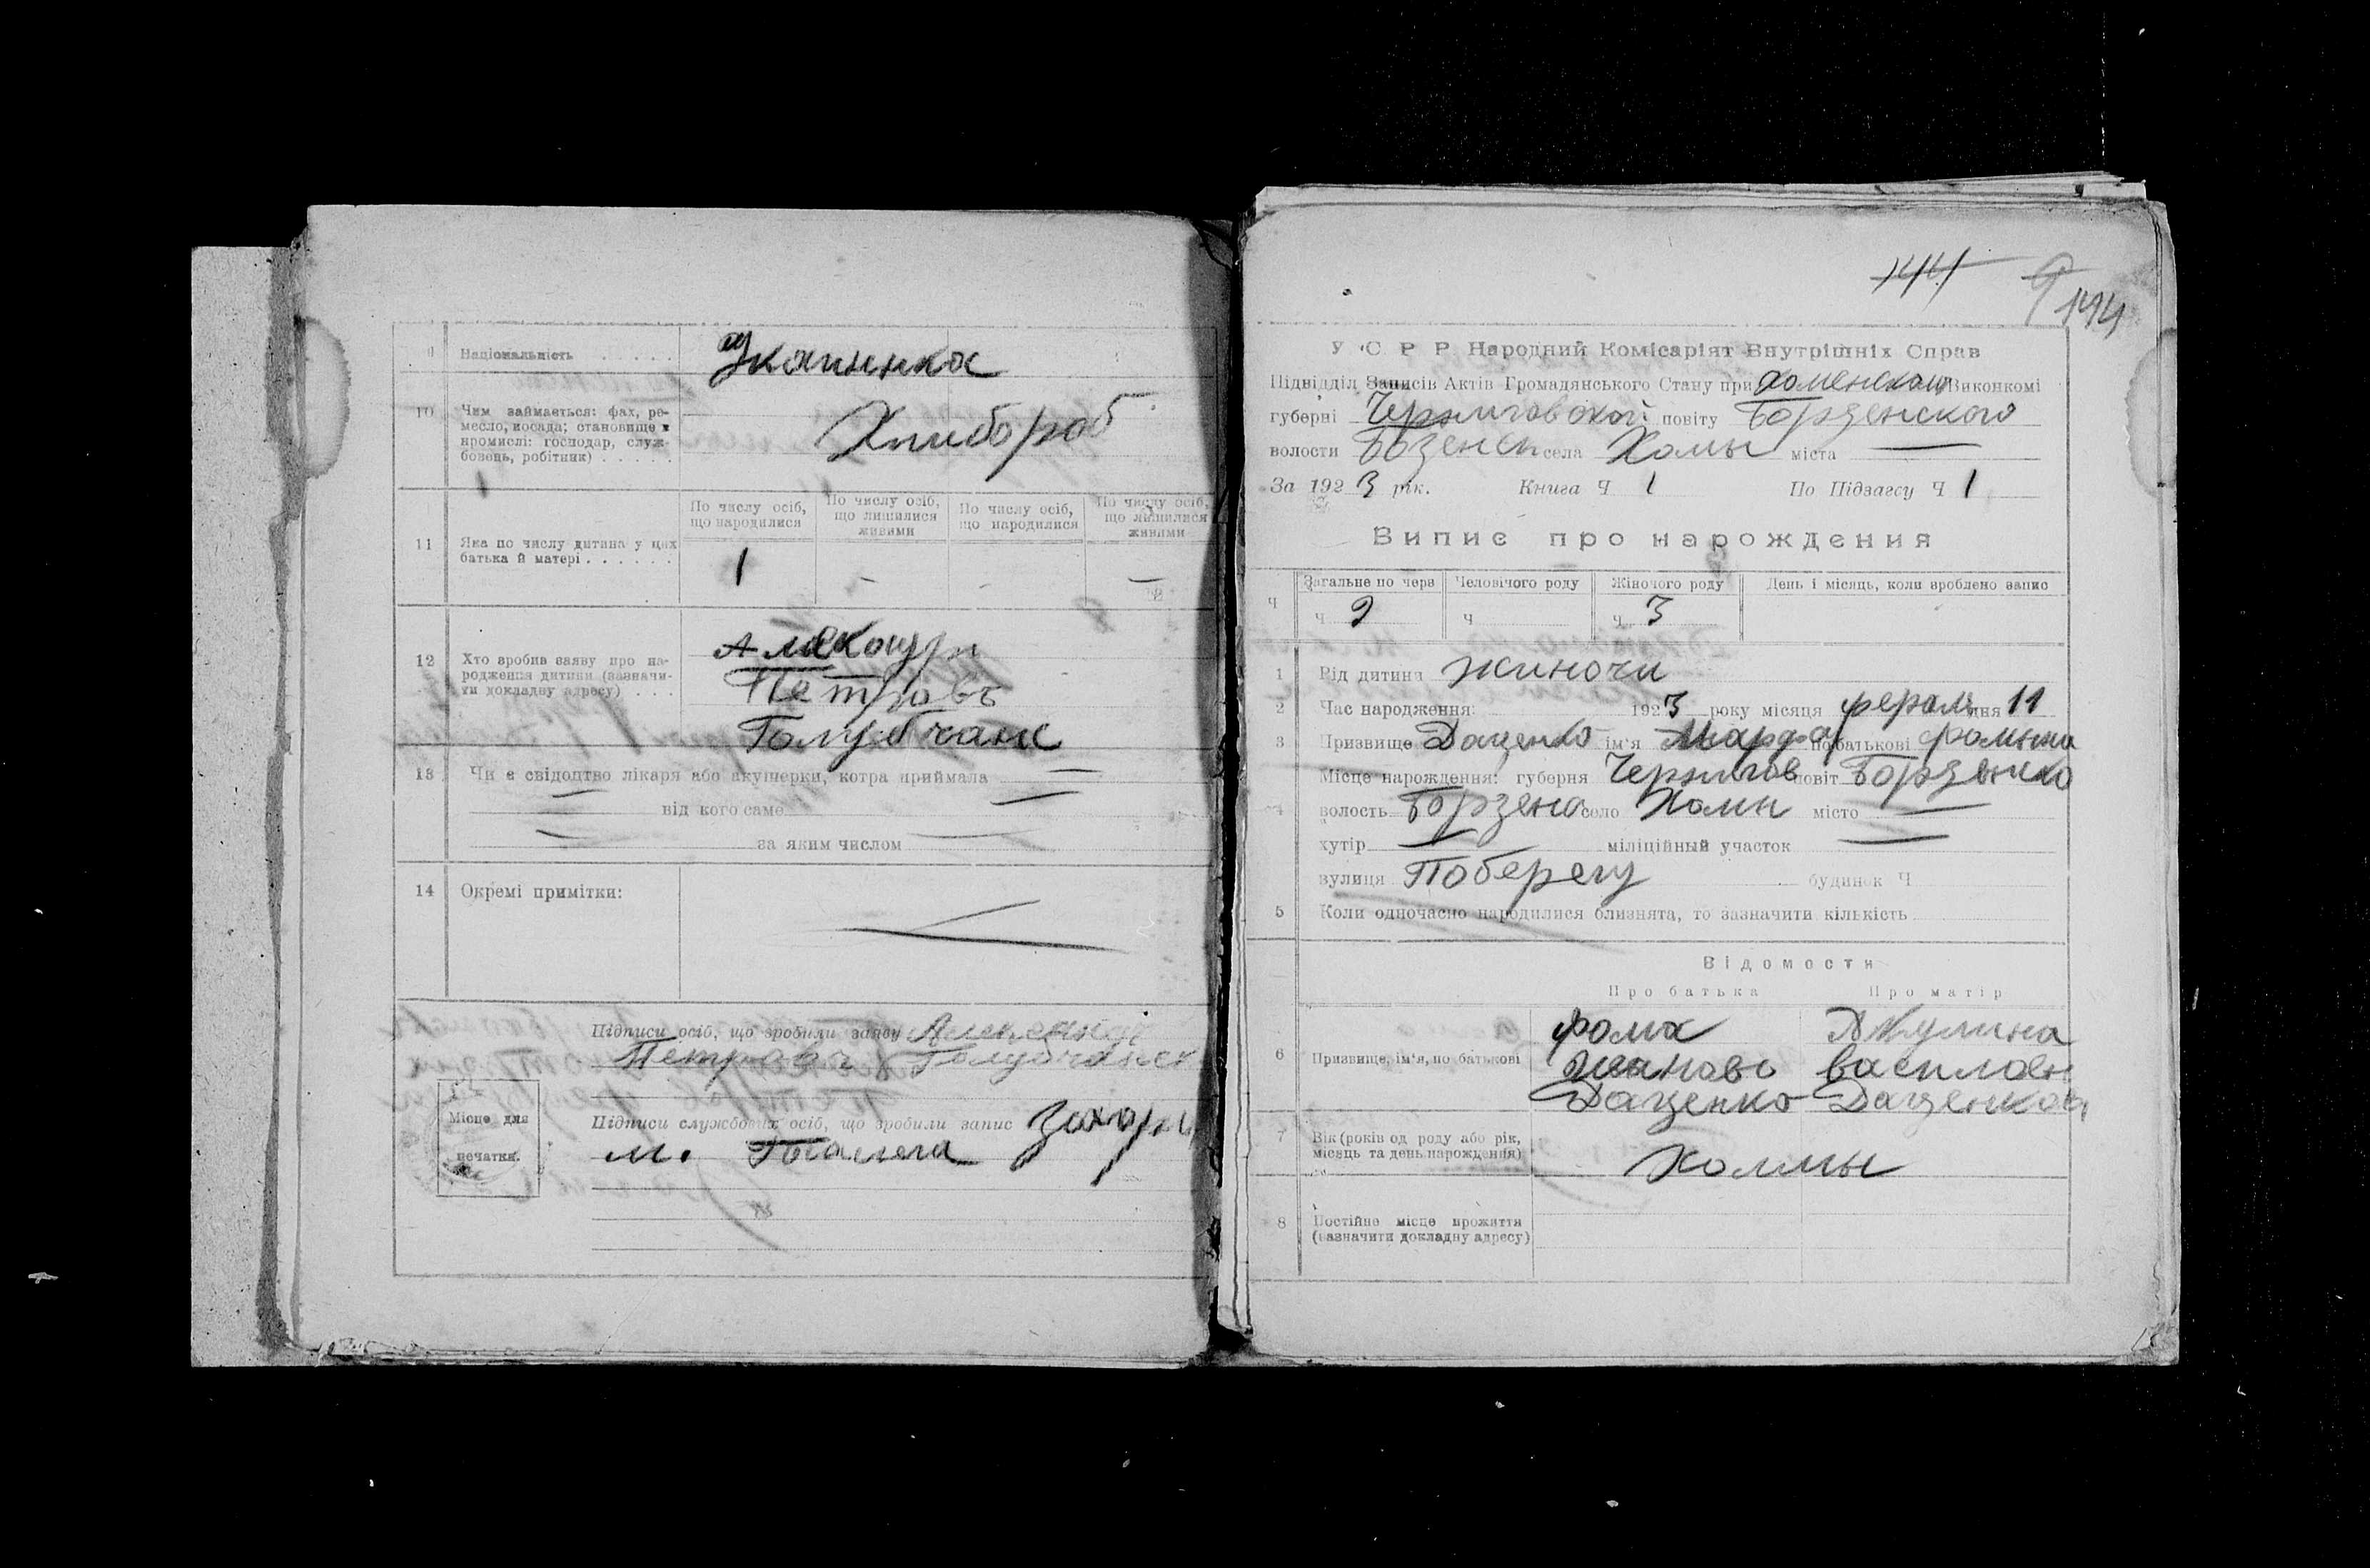 9 Національність . . . . . Украинка
10 Чим займається: фах, ре-
месло, посада; становище в
промислі: господар, служ-
бовець, робітник) . . . . .
Хлибороб
По числу осіб, що народилися
По числу осіб, що лишилися живими
По числу осіб, що народилися
По числу осіб, що лишилися живими
11 Яка по числу дитина у цих
батька й матері . . . . . .
1 – – –
12 Хто зробив заяву про на-
родження дитини (зазначи-
ти докладну адресу) . . .
Петровъ
Голубчанс
13 Чи є свідоцтво лікаря або акушерки, котра приймала —
— від кого саме —
— за яким числом —
14 Окремі примітки:
Підписи осіб, що зробили заяву
Голубчанск
Місце для
печатки.
Підписи службових осіб, що зробили запис Захарч
м.
144 9
144
У С Р Р Народний Комісаріят Внутрішніх Справ
Підвідділ Записів Актів Громадянського Стану при Виконкомі
губерні Черниговской повіту Борзенского
волости села Холмы міста —
За 1923 рік. Книга Ч 1 По Підзагсу Ч 1
Випис про народження
Ч Загальне по черв Человічого роду Жіночого роду День і місяць, коли зроблено запис
Ч 9 Ч Ч 3
1 Рід дитини жиночи
2 Час народження: 1923 року місяця дня 11
3 Призвище Даценко ім'я Марфа по батькові
Місце нарождення: губерня Чернигов повіт
4 волость Борзена село Холми місто —
хутір — міліційный участок —
вулиця Поберегу будинок Ч
5 Коли одночасно народилися близнята, то зазначити кількість
Відомости
Про батька Про матір
6 Призвище, ім'я, по батькові
Фома Акулина
Иваново василов
Даценко Даценкова
7 Вік (років од роду або рік,
місяць та день нарождення)
Холмы
8 Постійне місце прожиття
(зазначити докладну адресу)